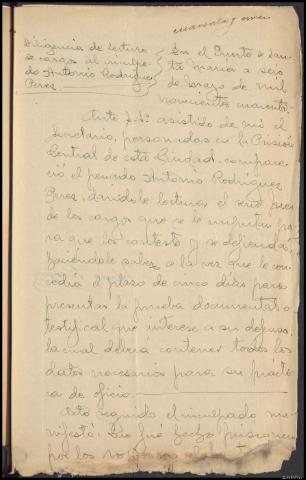 cuarenta y nueve
Diligencia de lectura
de cargos al inculpa-
do Antonio Rodriguez
Perez.
En el Puerto de San-
ta Maria a seis
de Marzo de mil
novecientos cuarenta.
Ante S.S. asistido de mi el
Secretario, personados en la Prision
Central de esta Ciudad, compare-
ció el penado Antonio Rodriguez
Perez, dandole lectura el Sr. Juez
de los cargos que se le imputan pa-
ra que los conteste y se defienda,
haciendole saber, a la vez que le con-
cedia el plazo de cinco dias para
presentar la prueba documental o
testifical que interese a su defensa,
la cual deberá contener todos los
datos necesarios para su práct-
ica de oficio.
Acto seguido el inculpado ma-
nifestó: Que fué hecho prisionero
por los